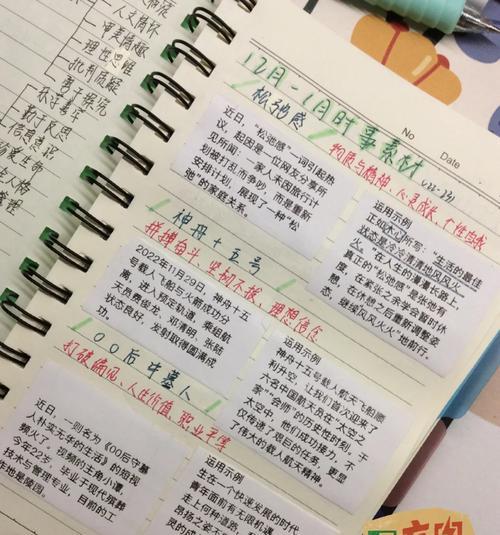 人文情怀
审美情趣
理性思维
批判质疑
勇于探究
乐学善学
勤于反思
信息意识
珍爱生命
管理
12月-1月时事素材
(22-23)
No
Date
松弛感
物质与精神、心灵成长、个性自我
近日，“松弛感”一词引起热
议，起因是一位网友分享所
见所闻：一家人未因旅行计
划被打乱而争吵，而是重新
安排计划，展现了一种“松
弛”的家庭关系。
运用示例
正如木心所写：“生活的最佳
状态是冷冷清清地风风火
火。”在人生的漫漫长路上
，真正的“松弛感”是张弛有
度，在紧张之余学会暂时休
息，在休憩之后重新调整姿
态，继续风风火火”地前行。
神舟十五号
拼搏奋斗、坚韧不拔、理想信念
2022年11月29日，神舟十五
号载人飞船与火箭成功分
离，进入预定轨道，乘组航
天员费俊龙、邓清明、张陆
状态良好，发射取得圆满成
功。
运用示例
神舟十五号载人航天飞船顺
利升空，让我们首次迎来了
六名中国航天员在“太空之
家”会师”的历史性时刻，于
太空中，他们成功接力，不
仅传递了艰巨的任务，更显
了伟大的载人航天精神。
00后守墓人
打破偏见、人生价值、职业平等
近日，一则名为《00后守墓
人朴实无华的生活》的短视
频火了，视频的主角小谭，
今年22岁，毕业于现代殡葬
技术与管理专业，目前的工
作地是陵园。
运用示例
生在一个快速发展的时代
青年面前有无限机遇
走上何种道路，
昂扬之姿